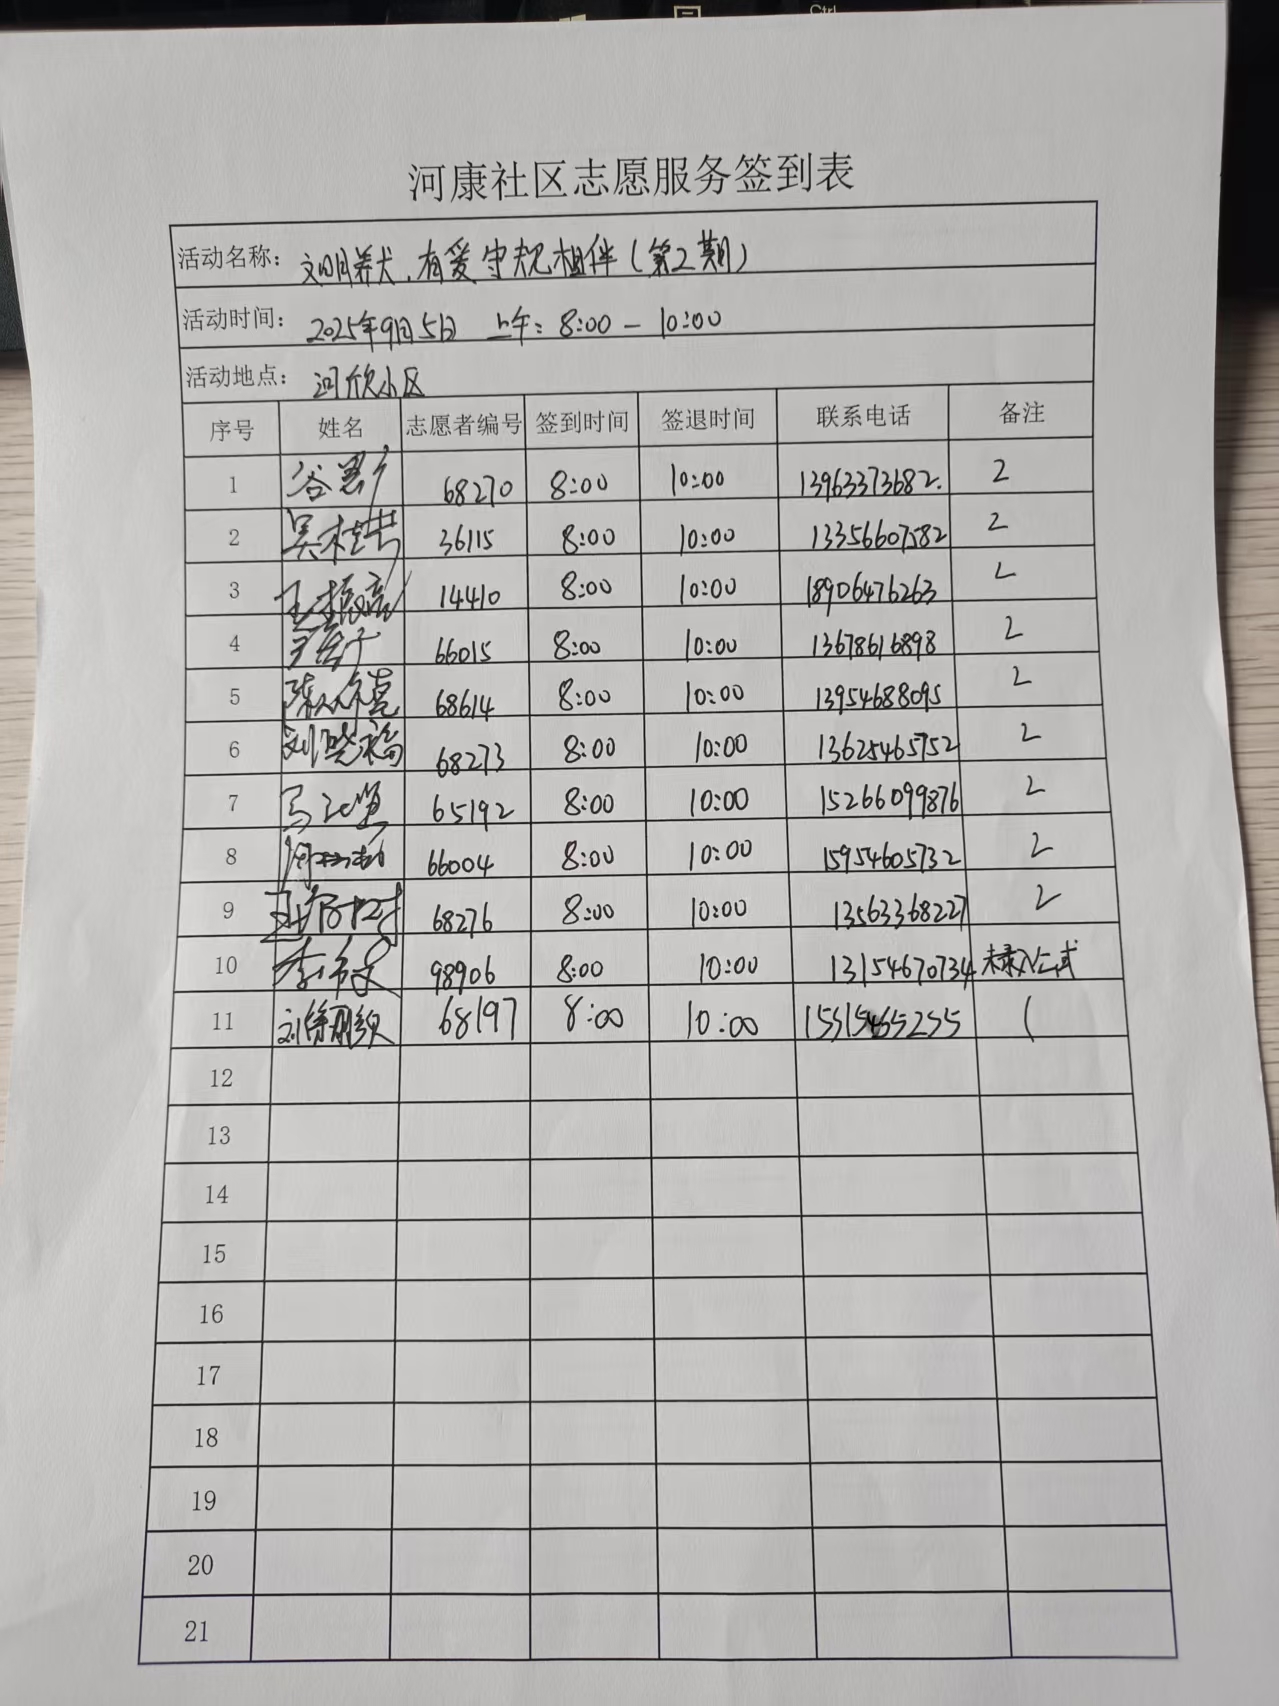 河康社区志愿服务签到表
活动名称: 文明养犬,有爱守规相伴(第2期)
活动时间: 2025年9月5日 上午: 8:00 — 10:00
活动地点: 河欣小区
序号 姓名 志愿者编号 签到时间 签退时间 联系电话 备注
1 68270 8:00 10:00 13963373682. 2
2 36115 8:00 10:00 13356607582 2
3 14410 8:00 10:00 18906476263 2
4 66015 8:00 10:00 13678616898 2
5 68614 8:00 10:00 13954688095 2
6 刘晓福 68273 8:00 10:00 13625465752 2
7 65192 8:00 10:00 15266099876 2
8 66004 8:00 10:00 15954605732 2
9 68276 8:00 10:00 13563368227 2
10 98906 8:00 10:00 13154670734
11 68197 8:00 10:00
12
13
14
15
16
17
18
19
20
21